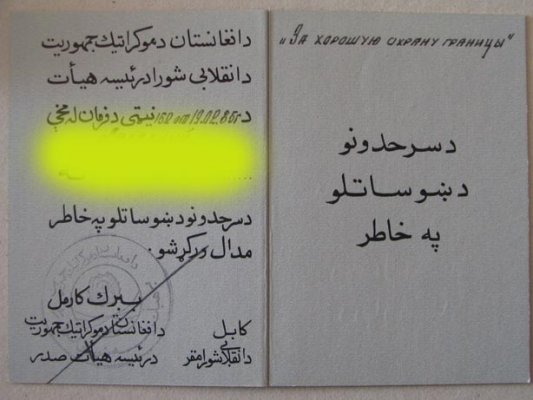 دافغانستان دموکراتیک جمهوریت
دانقلابی شورا درئیسه هیأت
د 150 от 19.02.86г نیټې دفرمان له مخې
دسرحدونودښوساتلو په خاطر
مدال ورکړشو.
ببرک کارمل
دافغانستان دموکراتیک جمهوریت
دانقلابی شورا
درئیسه هیأت صدر
کابل
مقر
„За хорошую охрану границы"
دسرحدونو
دښوساتلو
په خاطر